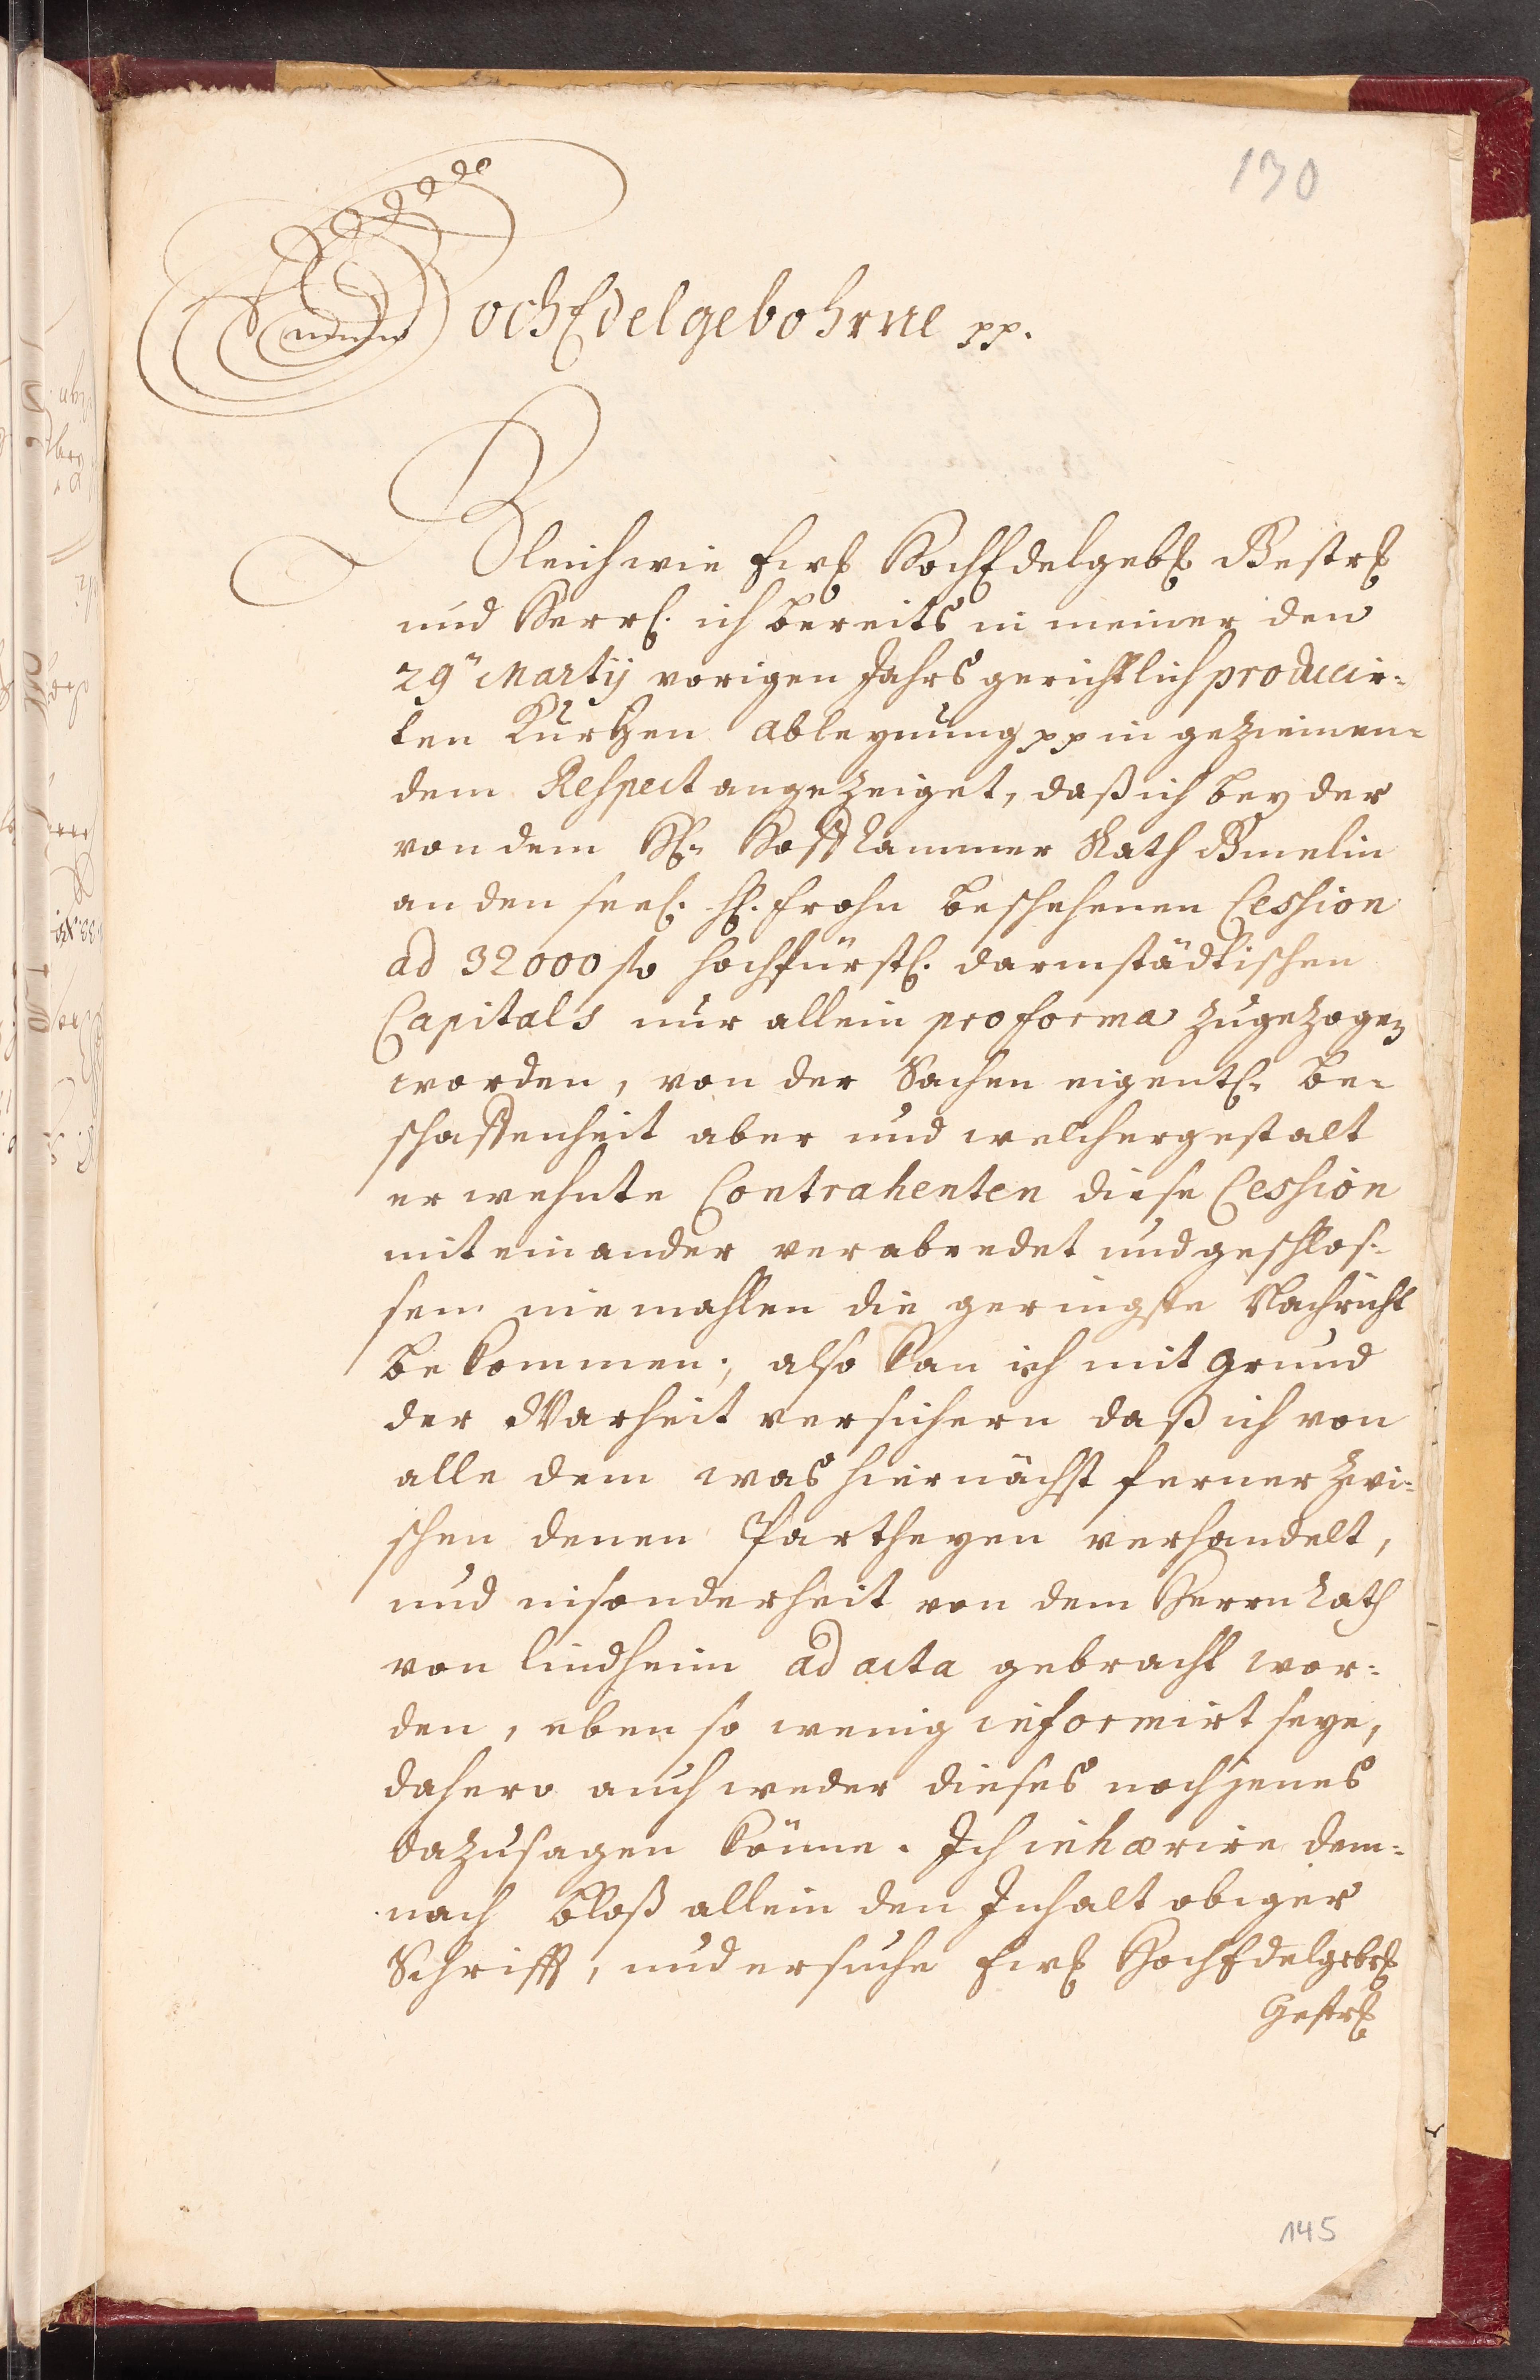 130
HochEdelgebohrne pp.
Gleichwie Ewr. HochEdelgeb. Gestr.
und Herrl. ich bereits in meiner den
29ⁿ Martij vorigen Jahrs gerichtlich producir-
ten Kurtzen ableynung pp in geziemen-
dem Respect angezeiget, daß ich bey der
von dem H. Hoff Cammer Rath Gmelin
an den seel. H. Frohn beschehenen Cession
ad 32000 fl. hochfürstl. darmstädtischen
Capitals nur allein pro forma zugezogen
worden, von der Sachen eigentl. be-
schaffenheit aber und welchergestalt
erwehnte Contrahenten diese Cession
mit einander verabredet und geschlos-
sen niemahlen die geringste Nachricht
bekommen; also kan ich mit grund
der Warheit versichern daß ich von
alle dem was hiernächst ferner zwi-
schen denen Partheyen verhandelt,
und insonderheit von dem Herrn Rath
von Lindheim ad acta gebracht wor-
den, eben so wenig informirt seye,
dahero auch weder dieses noch jenes
dazusagen könne. Ich inhærire dem-
nach bloß allein den Inhalt obiger
Schrifft, und ersuche Ewr. HochEdelgeb.
Gestr.
145